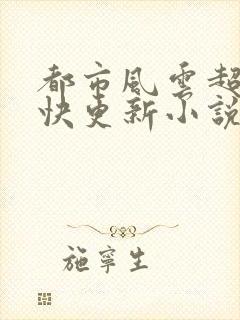 都市風雲超
快更新小說
施寧生